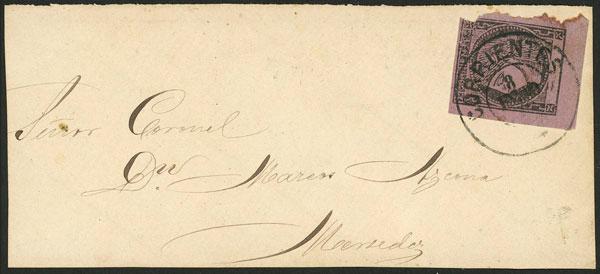 CORRIENTES
8
Señor Coronel
Dn Marcos Azcona
Mersedez